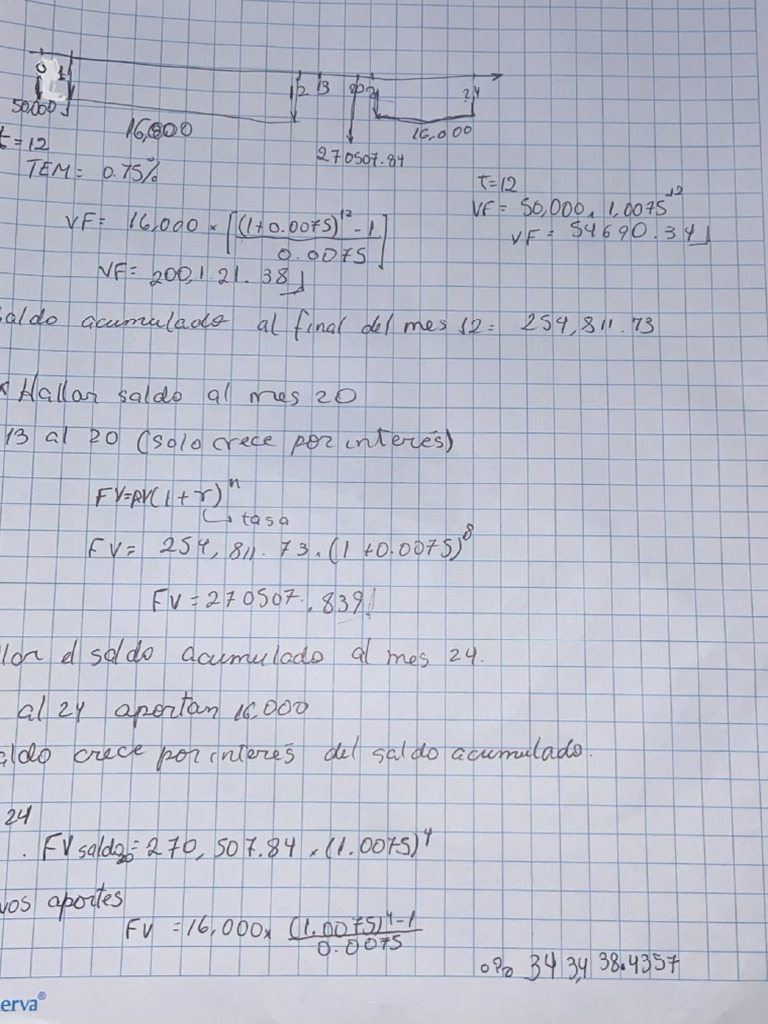 0 1 12 13 20 21 24
50.000
16,000 16,000
270507.84
t=12
TEM= 0.75%
VF= 16,000 × [(1+0.0075)^12 - 1 / 0.0075]
VF= 200,1.21.38
t=12
VF= 50,000 × 1,0075^12
VF= 54690.34
saldo acumulado al final del mes 12= 254,811.73
* Hallar saldo al mes 20
13 al 20 (solo crece por interés)
FV=PV(1+r)^n
↳ tasa
FV= 254,811.73.(1+0.0075)^8
FV=270507.839
llar el saldo acumulado al mes 24.
al 24 aportan 16.000
aldo crece por interés del saldo acumulado.
24
. FV saldo20=270,507.84 × (1.0075)^4
vos aportes
FV =16,000× (1.0075)^4-1 / 0.0075
343,438.4357
erva®